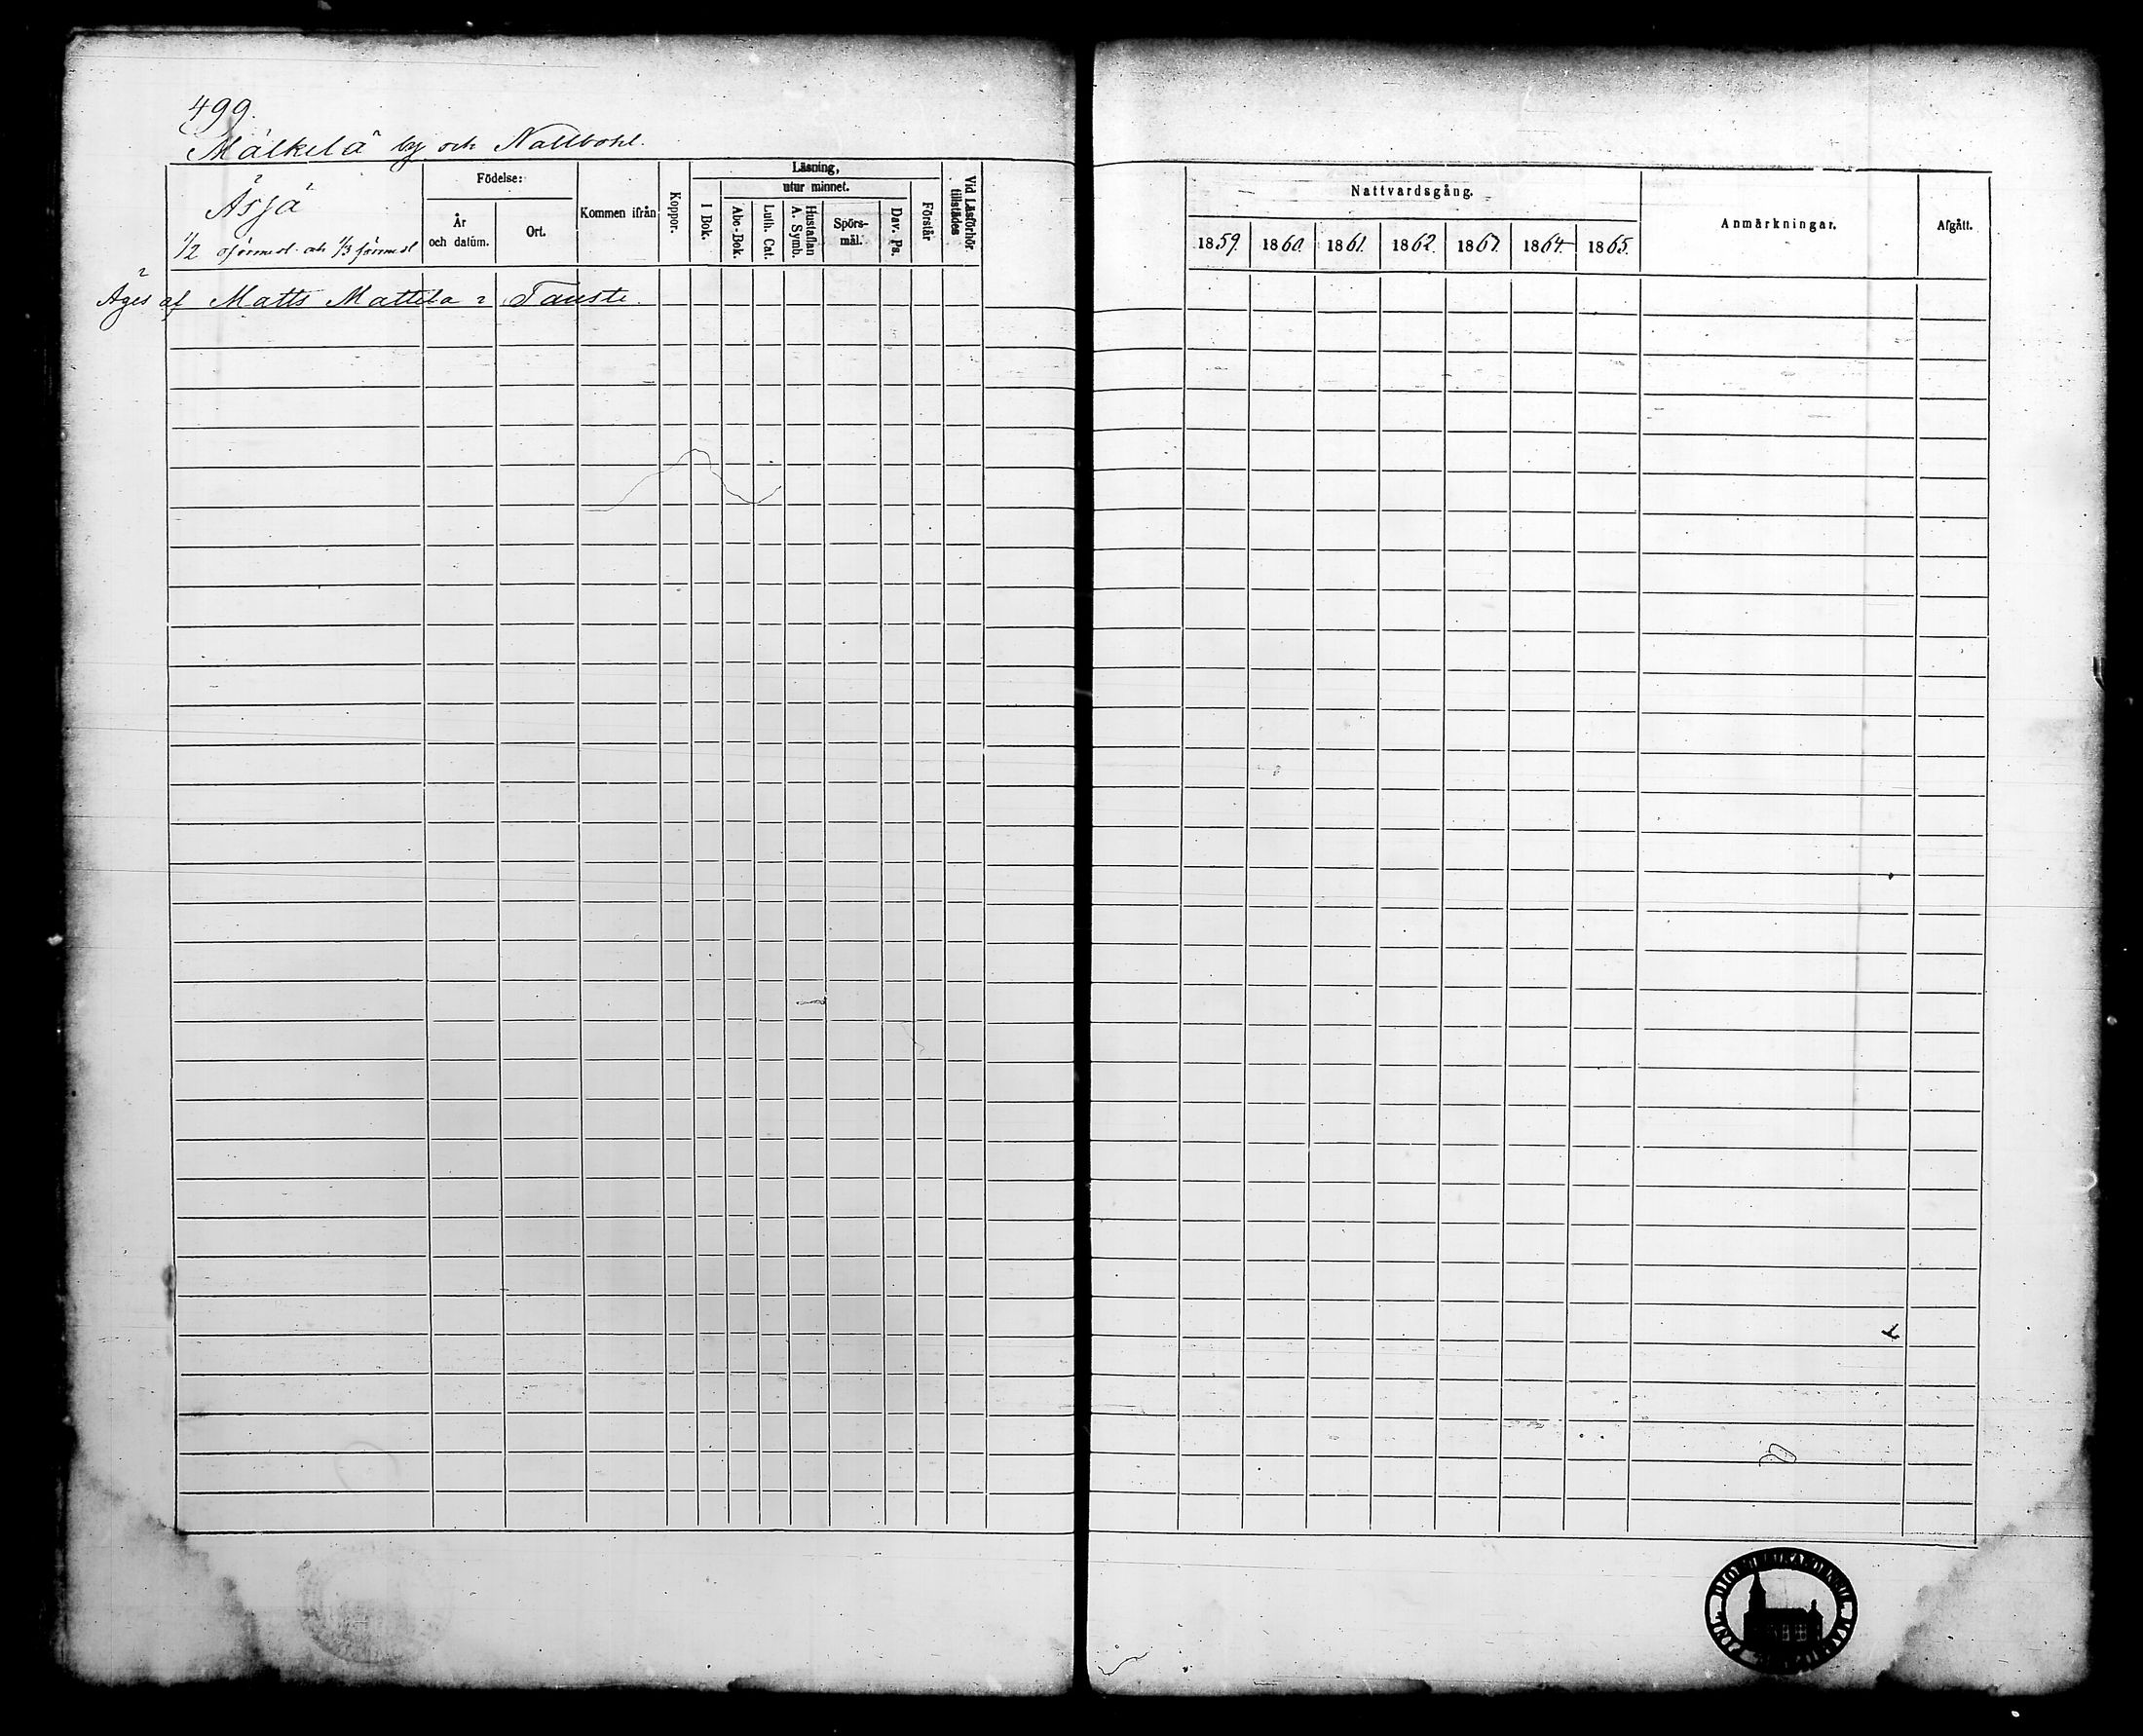 499.
Mälkelä by och Nallbohl.
Äijä
1/2 oförmed. och 1/3 förmedl
Födelse:
År
och datum.
Ort.
Kommen ifrån
Koppor.
Läsning,
utur minnet.
I Bok.
Abc-Bok.
Luth. Cat.
Hustaflan
A. Symb.
Spörs-
mål.
Dav. Ps.
Förstår
Vid Läsförhör.
tillstädes
Äges af Matts Mattila i Tauste.
Nattvardsgång.
1859. 1860. 1861. 1862. 1863. 1864. 1865.
Anmärkningar.
Afgått.